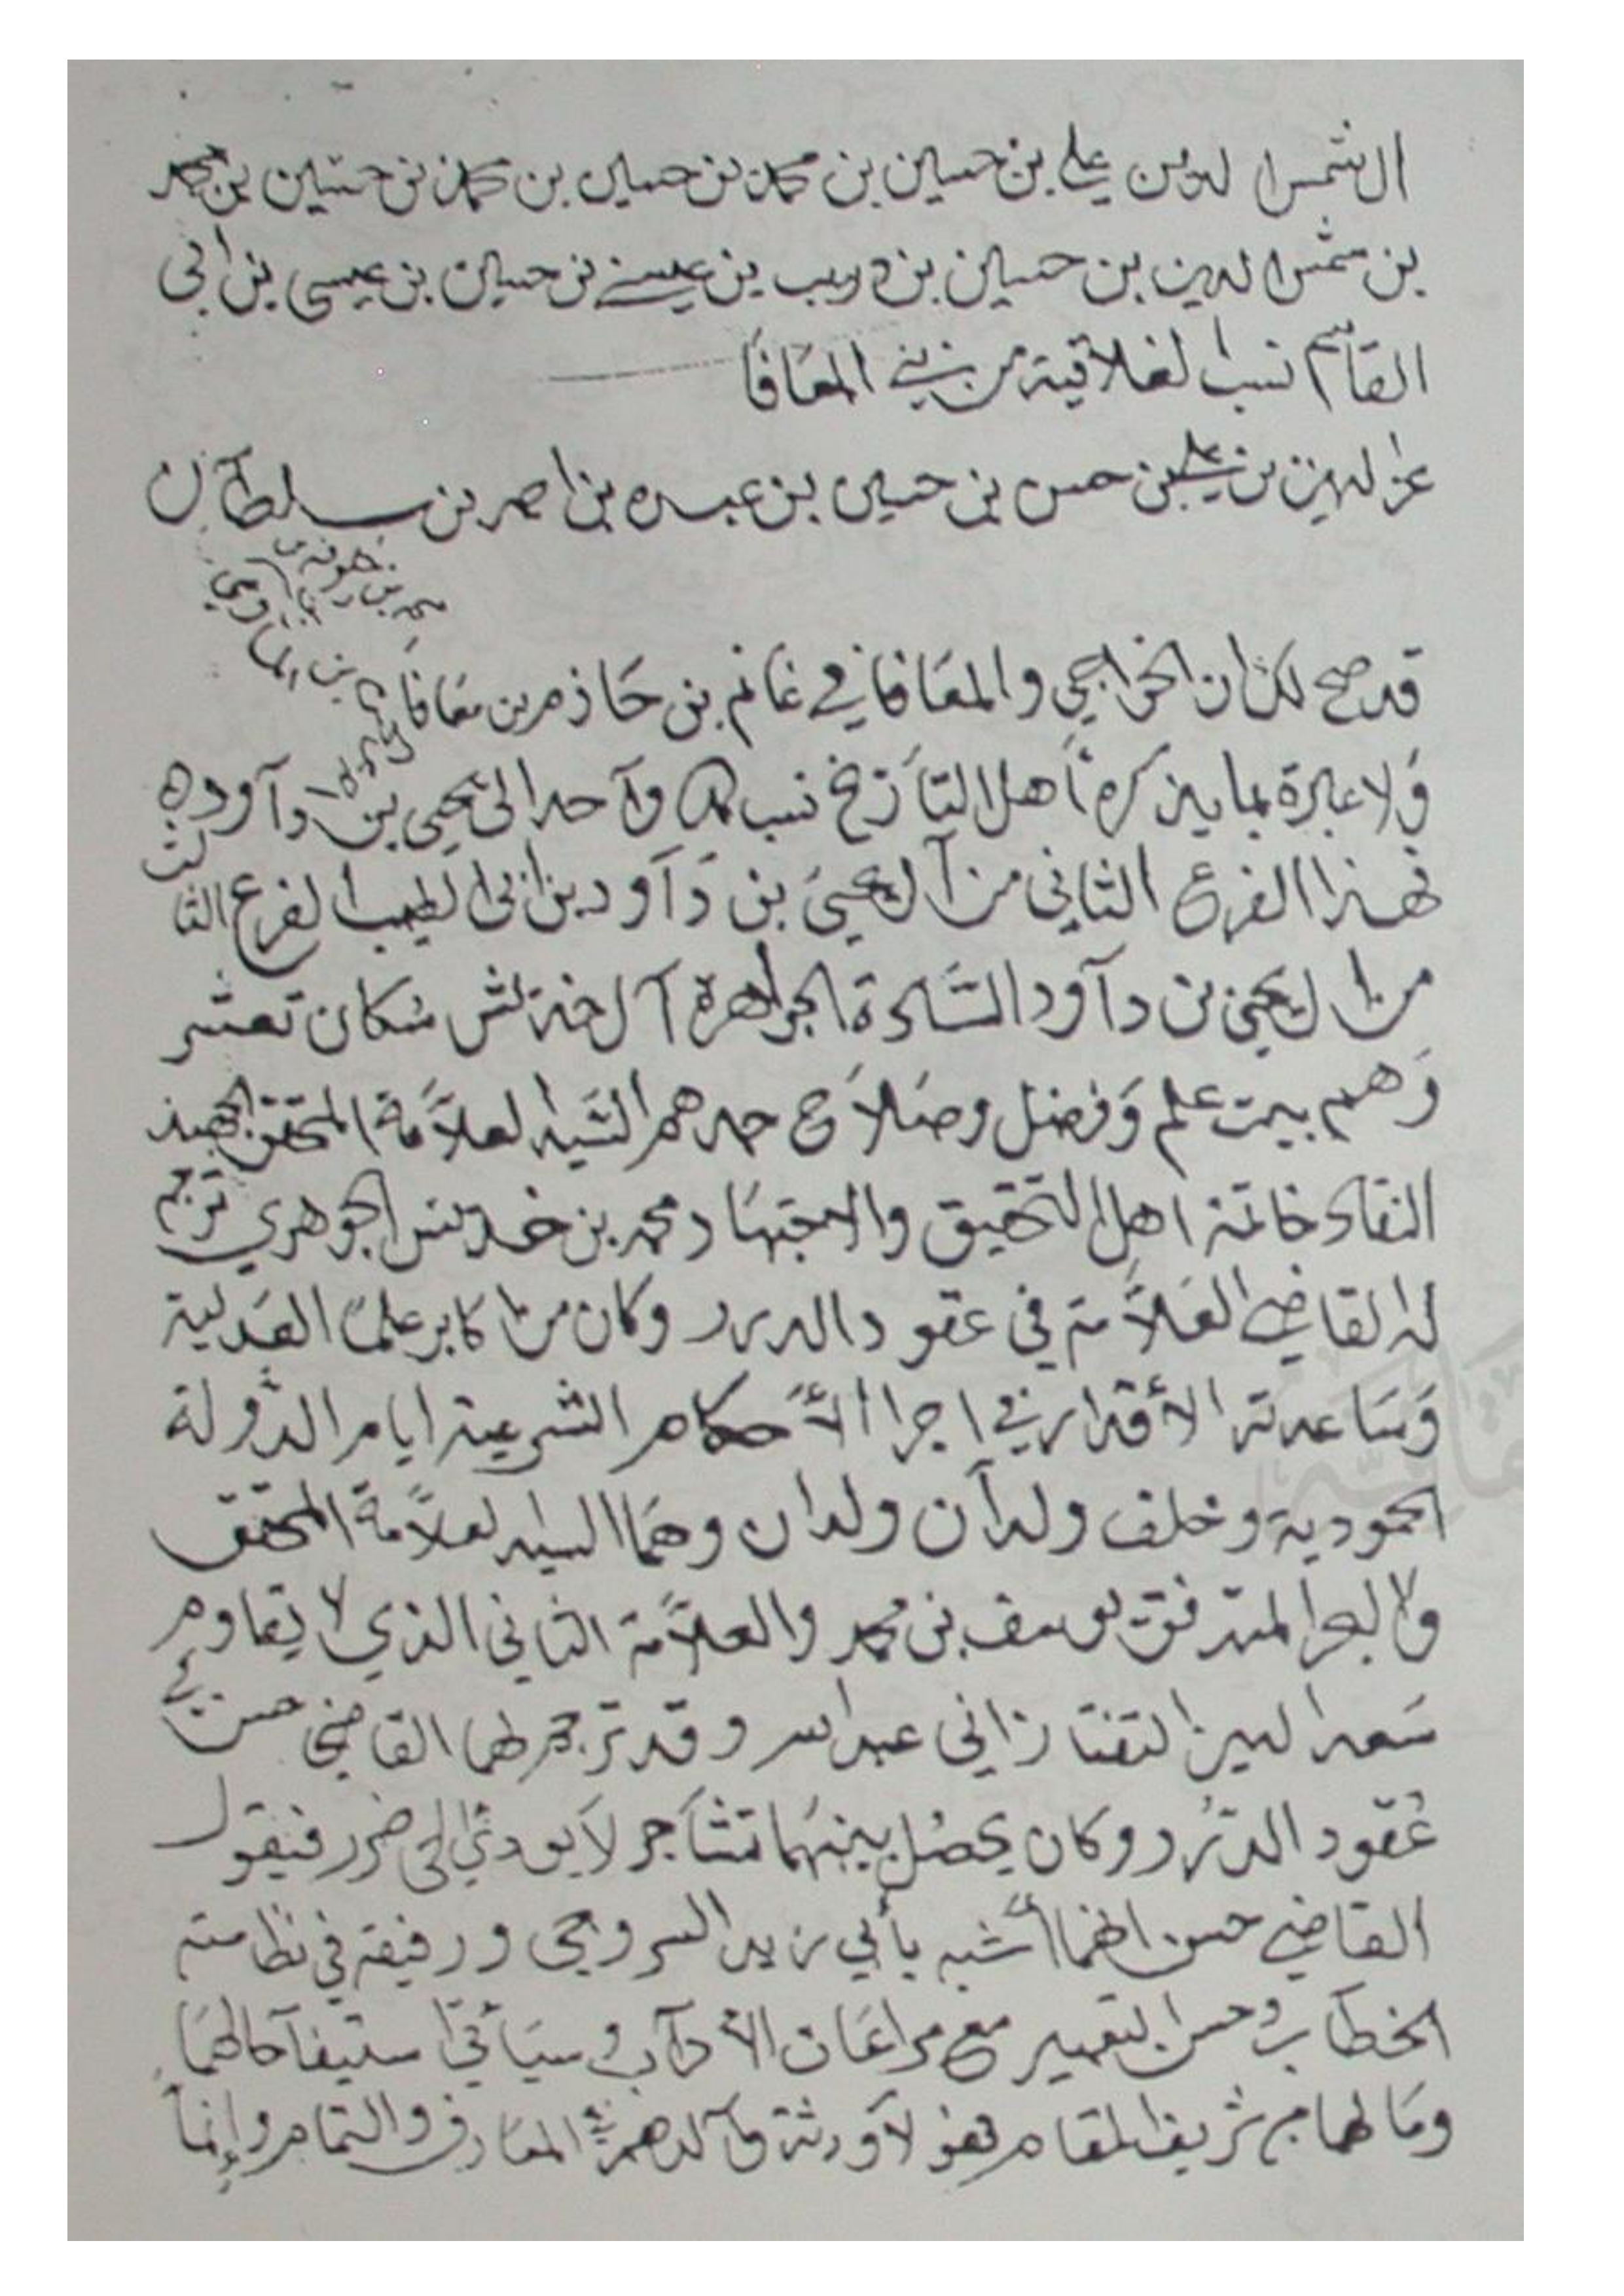 ال شمس الدين علي بن حسين بن محمد بن حسين بن محمد بن حسين بن محمد
بن شمس الدين بن حسين بن دريب بن عيسى بن حسين بن عيسى بن ابي
القاسم نسب الغلاقية من بني المعافا
عز الدين بن علي بن حسن بن حسين بن عبده بن احمد بن سلطان
قد صح لك ان الخواجي والمعافا في غانم بن حازم بن معافا
ولا عبرة بما يذكره اهل التأريخ نسب واحد الى يحيى بن دآود
فهذا الفرع الثاني من آل يحيى بن دآود بن ابي الطيب الفرع الثالث
من ال يحيى بن دآود السادة الجواهرة آل خديش سكان تعشر
وهم بيت علم وفضل وصلاح جدهم السيد العلامة المحقق الجهبذ
النقاد خاتمة اهل التحقيق والاجتهاد محمد بن خديش الجوهري ترجم
له القاضي العلامة في عقود الدرر وكان من اكابر علماء العدلية
وساعدته الأقدار في اجرا الأحكام الشرعية ايام الدولة
الحمودية وخلف ولدآن ولدان وهما السيد العلامة المحقق
والبحر المتدفق يوسف بن محمد والعلامة الثاني الذي لا يقاوم
سعد الدين التفتازاني عبدالله وقد ترجم لهما القاضي حسن في
عقود الدرر وكان يحصل بينهما تشاجر لا يودي الى ضرر فيقول
القاضي حسن انهما أشبه بأبي زيد السروجي ورفيقه في نظامته
الخطاب وحسن التعبير مع مراعات الأدآب وسيأتي استيفآ حالهما
وما لهما من شريف المقام فهو لآ ورثة وآلدهم في المعارف والتمام وإنما